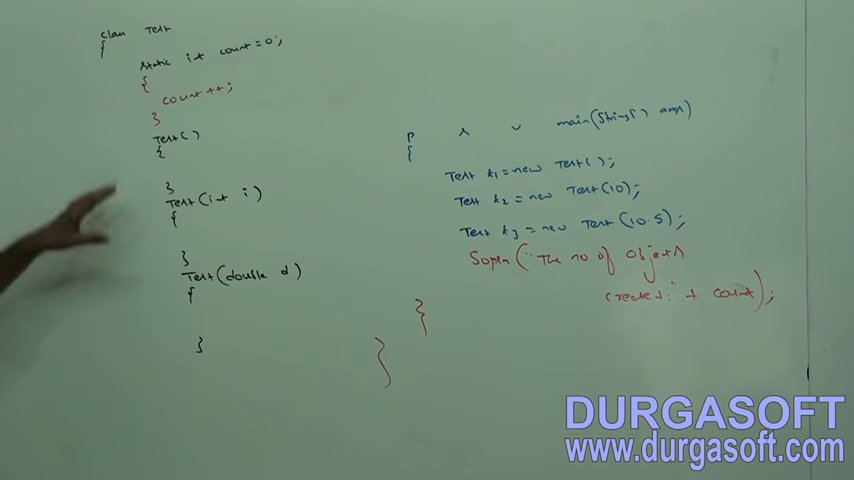 class Test
{
static int count=0;
{
count++;
}
Test()
{
}
Test(int i)
{
}
Test(double d)
{
}
p s v main(String[] args)
{
Test t1=new Test();
Test t2=new Test(10);
Test t3=new Test(10.5);
Sopln("The no of objects
created:" + count);
}
}
DURGASOFT
www.durgasoft.com